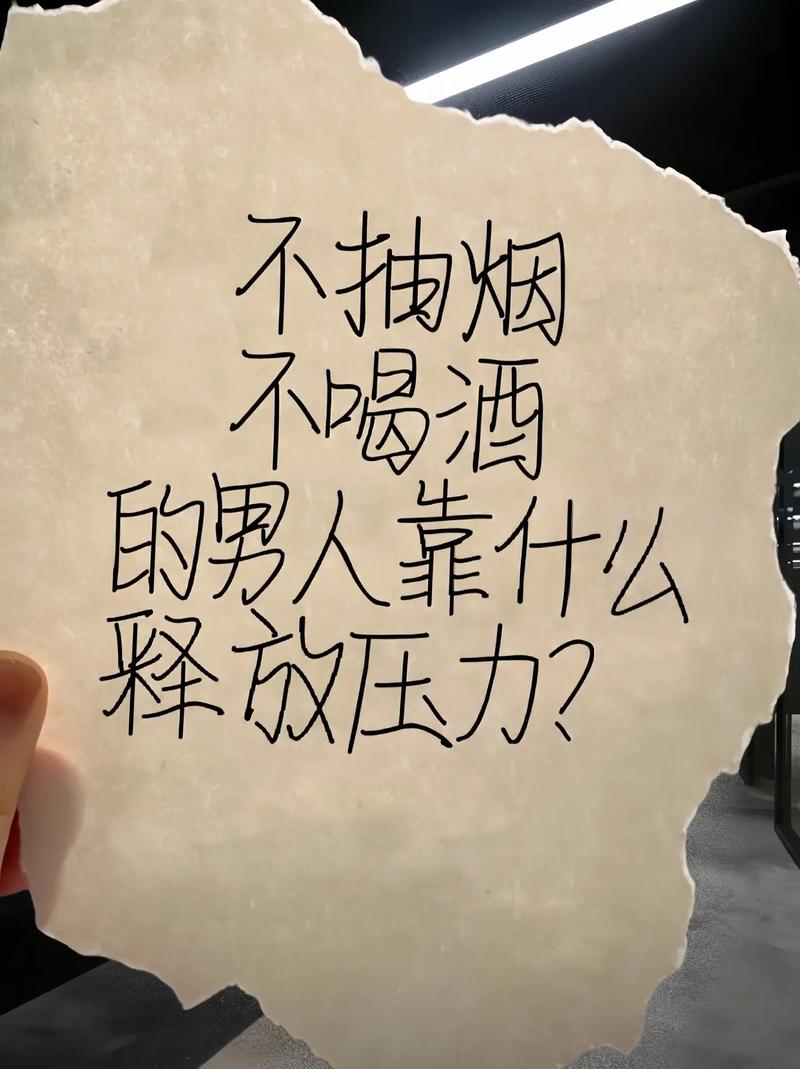 不抽烟
不喝酒
的男人靠什么
释放压力?